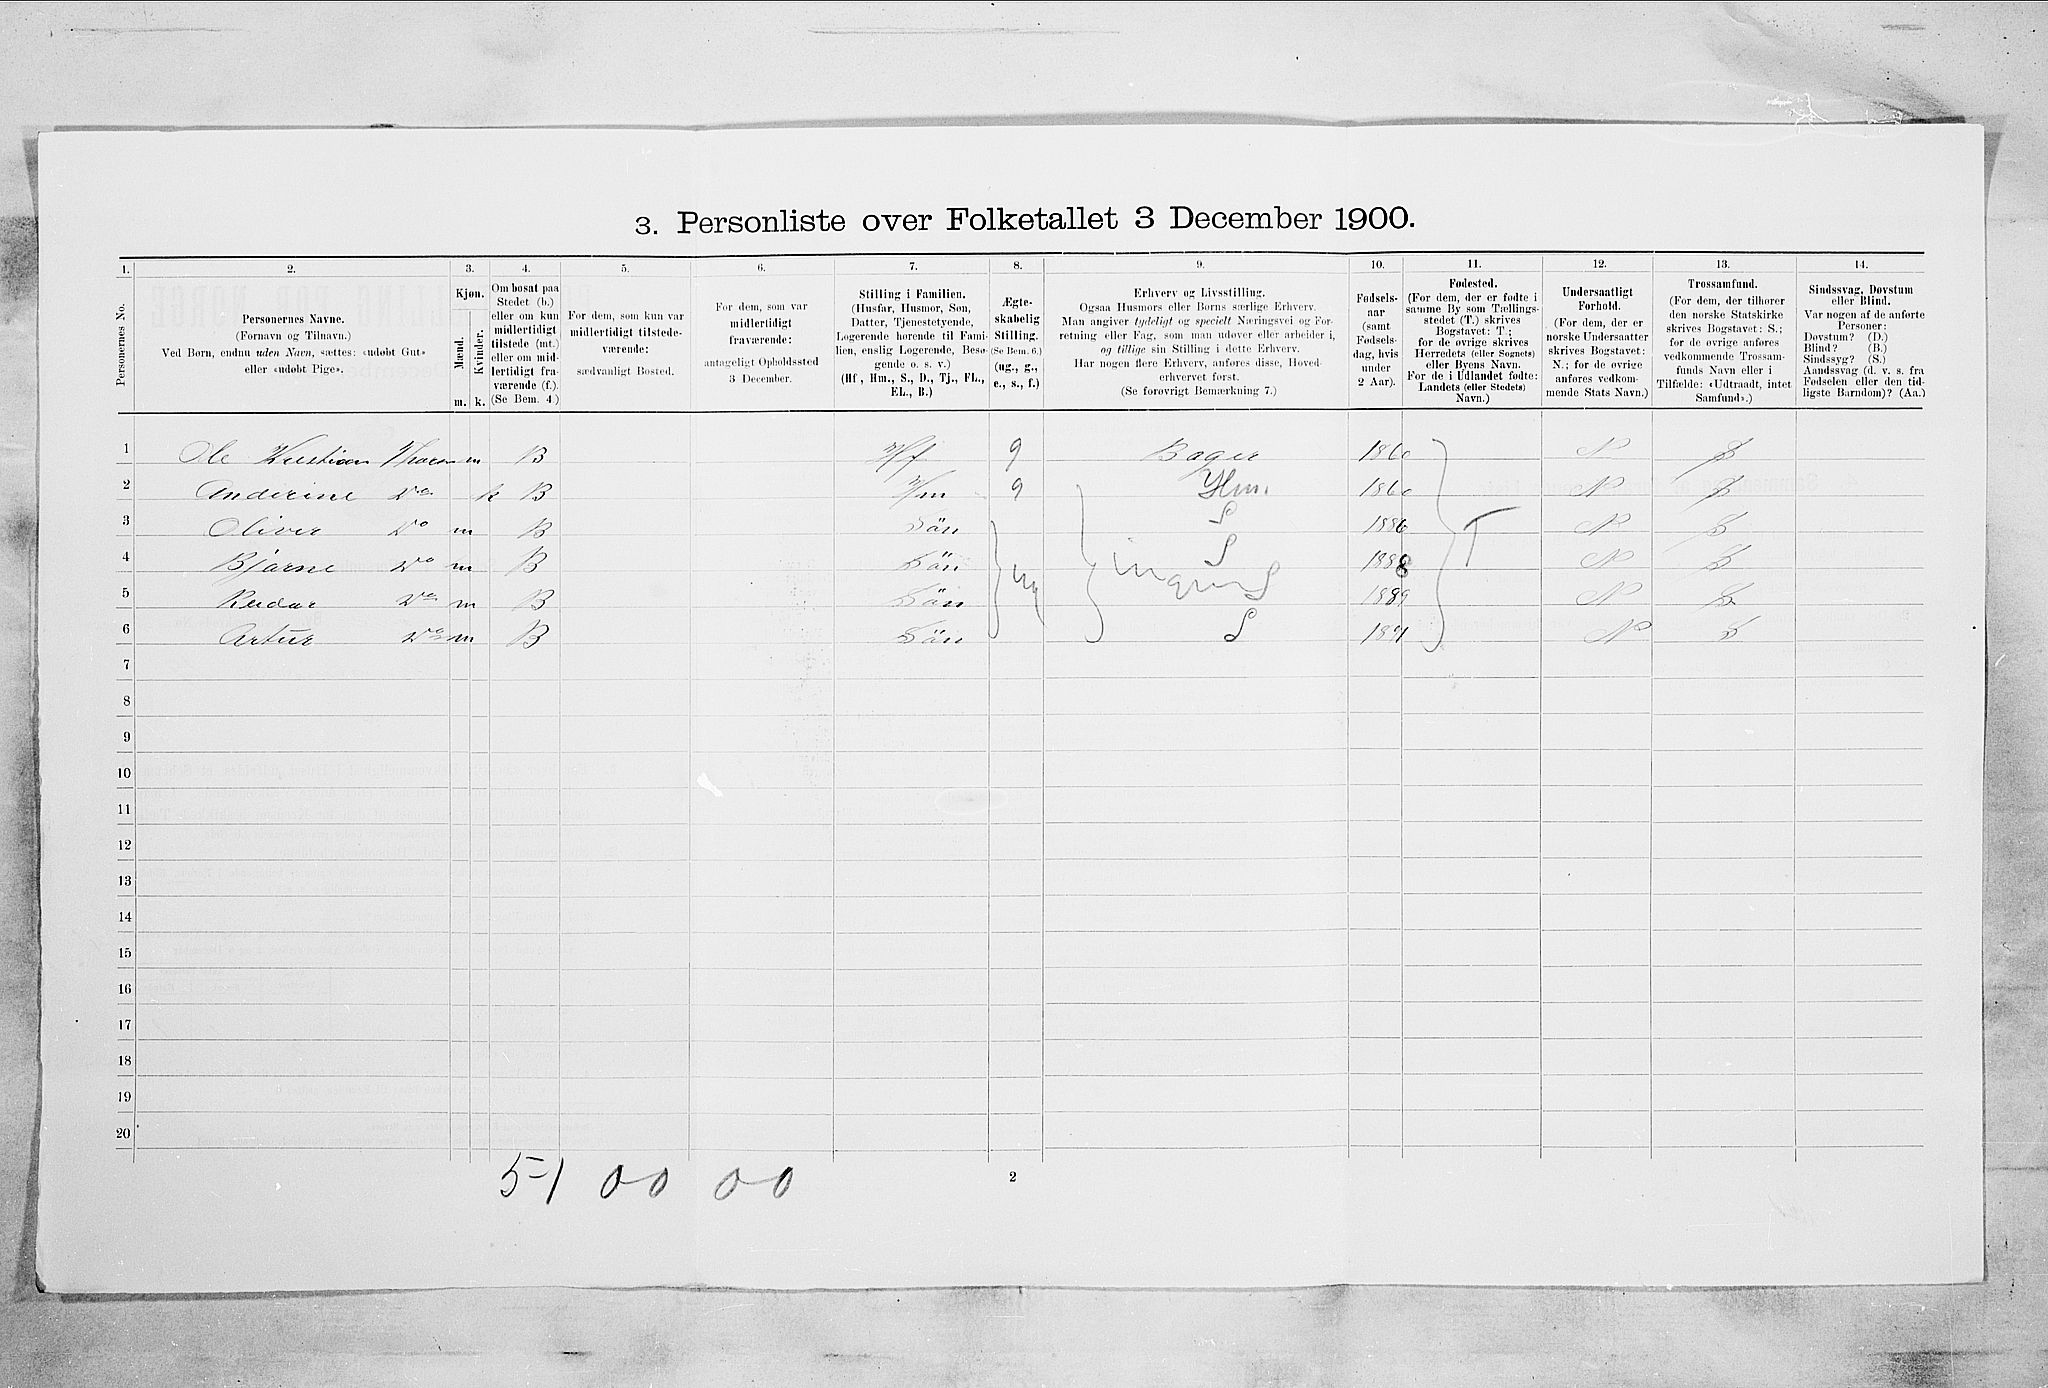 3. Personliste over Folketallet 3 December 1900.
1. 2. 3. 4. 5. 6. 7. 8. 9. 10. 11. 12. 13. 14.
Personernes No.
Personernes Navne.
(Fornavn og Tilnavn.)
Ved Børn, endnu uden Navn, sættes: «udøbt Gut»
eller «udøbt Pige».
Kjøn.
Mænd.
Kvinder.
m. k.
Om bosat paa
Stedet (b.)
eller om kun
midlertidigt
tilstede (mt.)
eller om mid-
lertidigt fra-
værende (f.).
(Se Bem. 4.)
For dem, som kun var
midlertidigt tilstede-
værende:
sædvanligt Bosted.
For dem, som var
midlertidigt
fraværende:
antageligt Opholdssted
3 December.
Stilling i Familien.
(Husfar, Husmor, Søn,
Datter, Tjenestetyende,
Logerende hørende til Fami-
lien, enslig Logerende, Besø-
gende o. s. v.)
(Hf, Hm., S., D., Tj., FL.,
EL., B.)
Ægte-
skabelig
Stilling.
(Se Bem. 6.)
(ug., g.,
e., s., f.)
Erhverv og Livsstilling.
Ogsaa Husmors eller Børns særlige Erhverv.
Man angiver tydeligt og specielt Næringsvei og For-
retning eller Fag, som man udøver eller arbeider i,
og tillige sin Stilling i dette Erhverv.
Har nogen flere Erhverv, anføres disse, Hoved-
erhvervet først.
(Se forøvrigt Bemærkning 7.)
Fødsels-
aar
(samt
Fødsels-
dag, hvis
under
2 Aar).
Fødested.
(For dem, der er fødte i
samme By som Tællings-
stedet (T.) skrives
Bogstavet: T;
for de øvrige skrives
Herredets (eller Sognets)
eller Byens Navn.
For de i Udlandet fødte:
Landets (eller Stedets)
Navn.)
Undersaatligt
Forhold.
(For dem, der er
norske Undersaatter
skrives Bogstavet:
N.; for de øvrige
anføres vedkom-
mende Stats Navn.)
Trossamfund.
(For dem, der tilhører
den norske Statskirke
skrives Bogstavet: S.;
for de øvrige anføres
vedkommende Trossam-
funds Navn eller i
Tilfælde: «Udtraadt, intet
Samfund».)
Sindssvag, Døvstum
eller Blind.
Var nogen af de anførte
Personer:
Døvstum? (D.)
Blind? (B.)
Sindssyg? (S.)
Aandssvag (d. v. s. fra
Fødselen eller den tid-
ligste Barndom)? (Aa.)
1 Ole Kristian m B Hf g Bager 1860 N S
2 Anderine Do k B Hm g Hm. 1860 N S
3 Oliver Do m B Sön S 1886 T N S
4 Bjarne Do m B Sön ug S 1888 N S
5 Reidar Do m B Sön ingen S 1889 N S
6 Artur Do m B Sön S 1891 N S
7
8
9
10
11
12
13
14
15
16
17
18
19
20
5-1 00 00
2